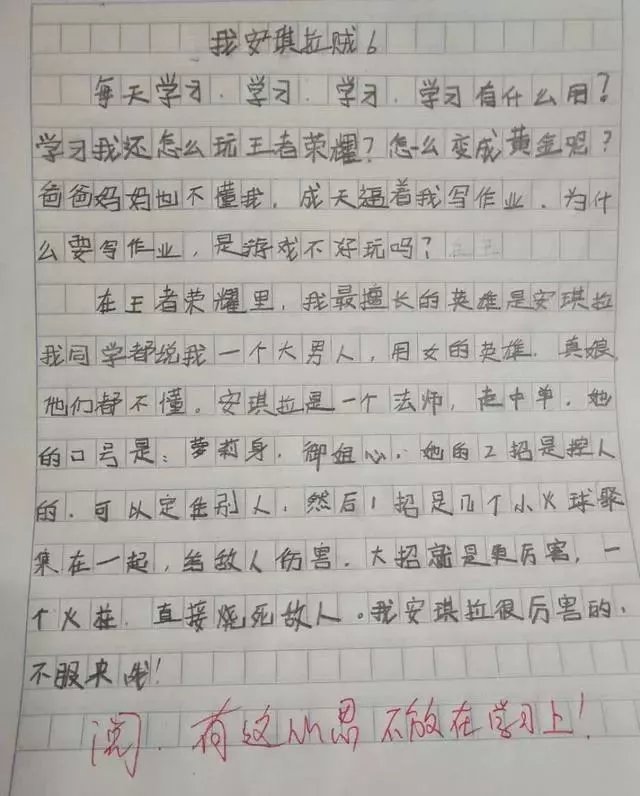 我安琪拉贼6
每天学习.学习.学习.学习有什么用?
学习我还怎么玩王者荣耀?怎么变成黄金呢?
爸爸妈妈也不懂我.成天逼着我写作业.为什
么要写作业,是游戏不好玩吗?
在王者荣耀里,我最擅长的英雄是安琪拉
我同学都说我一个大男人,用女的英雄.真娘,
他们都不懂。安琪拉是一个法师,走中单.她
的口号是:萝莉身.御姐心.她的2招是控人
的.可以定住别人.然后1招是几个小火球聚
集在一起,给敌人伤害.大招就是更厉害,一
个火柱.直接烧死敌人。我安琪拉很厉害的.
不服来战!
阅.有这心思不放在学习上!